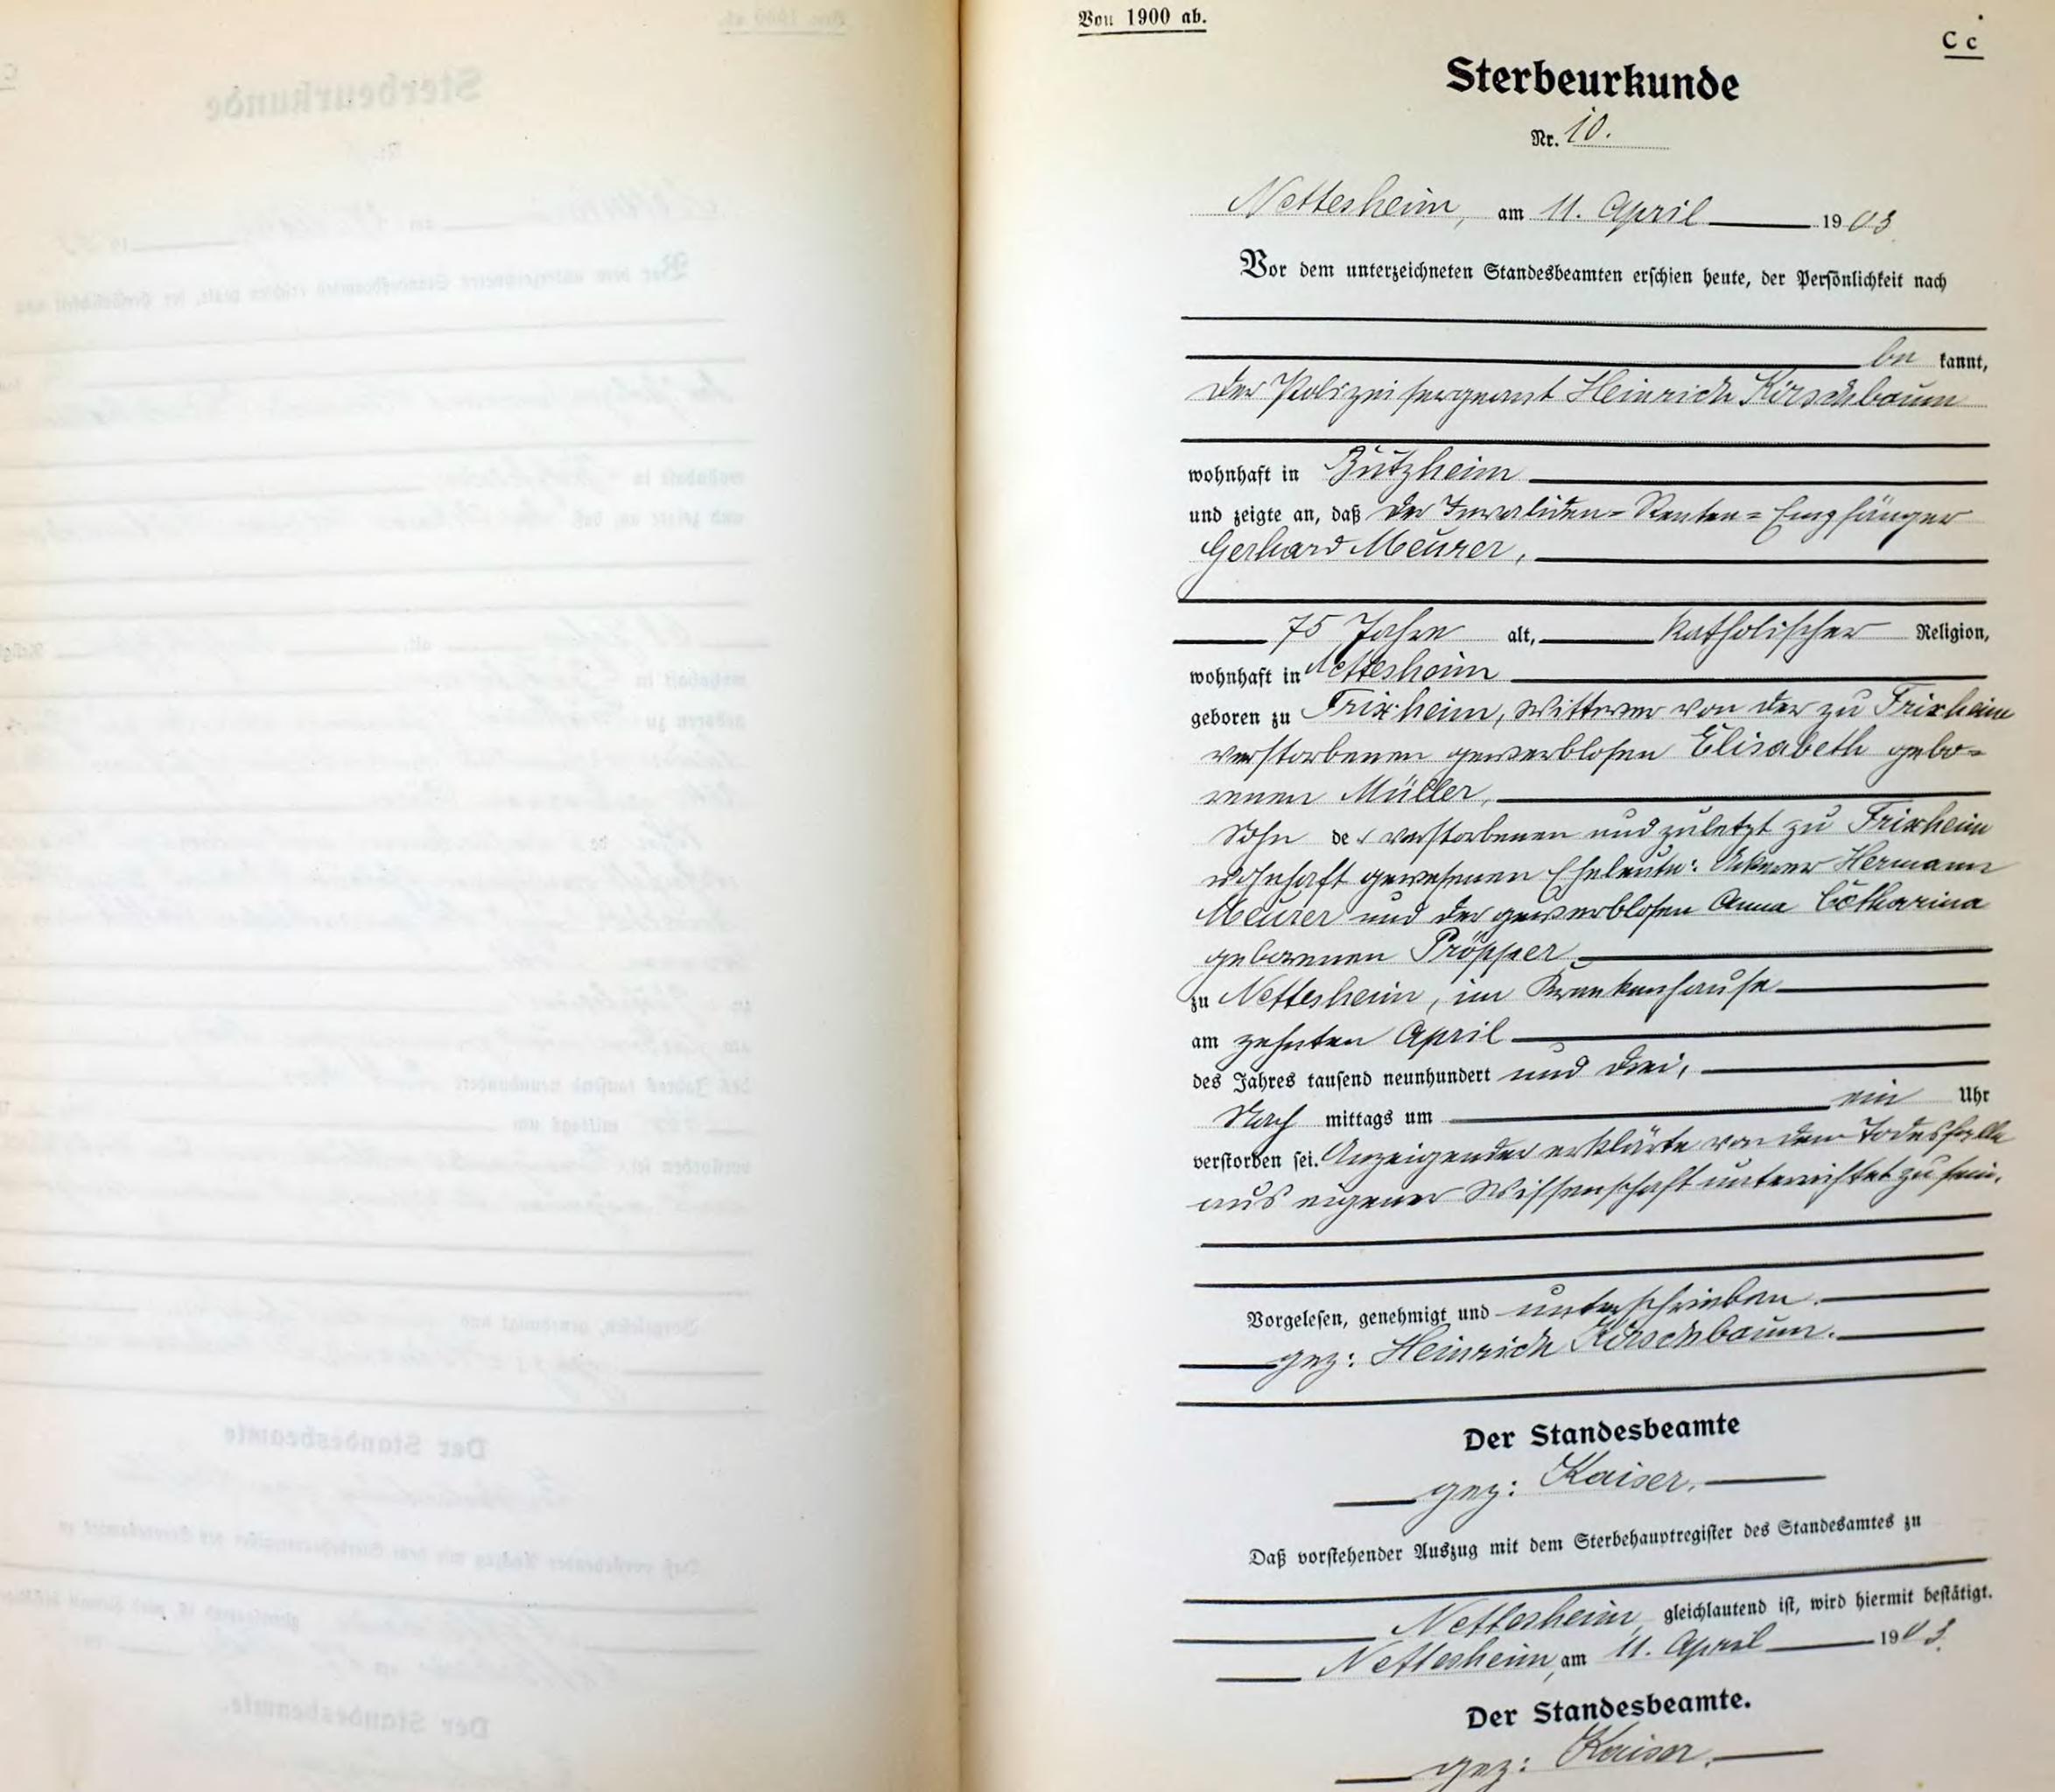 Von 1900 ab.
C c
Sterbeurkunde
Nr. 10.
Nettesheim, am 11. April 1903
Vor dem unterzeichneten Standesbeamten erschien heute, der Persönlichkeit nach
be kannt,
der Polizeisergeant Heinrich Kirschbaum
wohnhaft in Bützheim
und zeigte an, daß der Invaliden-Renten-Empfänger
Gerhard Meurer,
75 Jahre alt, katholischer Religion,
wohnhaft in Nettesheim
geboren zu Frixheim, Wittwer von der zu Frixheim
verstorbenen gewerblosen Elisabeth gebo-
renen Müller,
Sohn der verstorbenen und zuletzt zu Frixheim
wohnhaft gewesenen Eheleute: Ackerer Hermann
Meurer und der gewerblosen Anna Catharina
geborenen Pröpper
zu Nettesheim, im Krankenhause
am zehnten April
des Jahres tausend neunhundert und drei,
Nach mittags um ein Uhr
verstorben sei. Anzeigender erklärte von dem Todesfalle
aus eigener Wissenschaft unterrichtet zu sein.
Vorgelesen, genehmigt und unterschrieben.
gez: Heinrich Kirschbaum.
Der Standesbeamte
gez: Kaiser.
Daß vorstehender Auszug mit dem Sterbehauptregister des Standesamtes zu
Nettesheim gleichlautend ist, wird hiermit bestätigt.
Nettesheim, am 11. April 1903.
Der Standesbeamte.
gez: Kaiser.